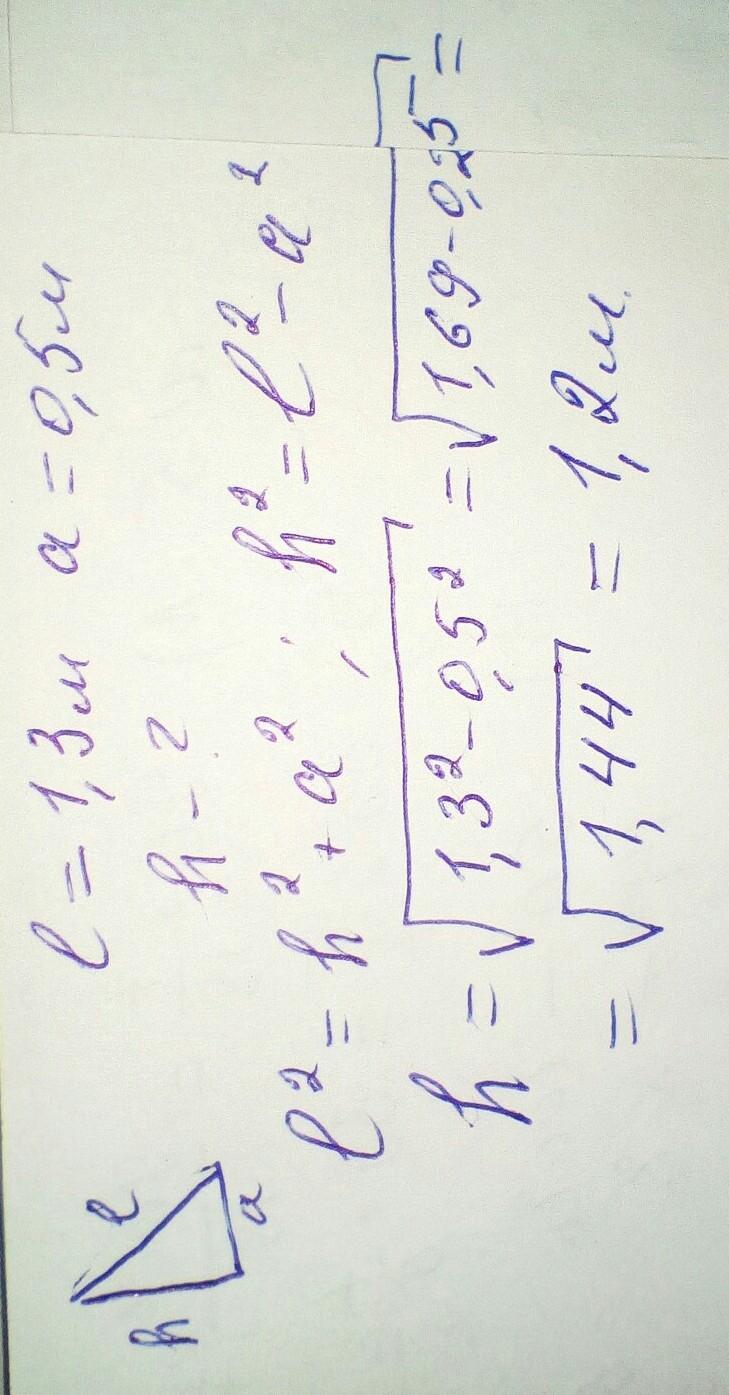 l = 1,3м a = 0,5м
h - ?
l² = h² + a² ; h² = l² - a²
h = √1,3² - 0,5² = √1,69 - 0,25 =
= √1,44 = 1,2м.
h
l
a